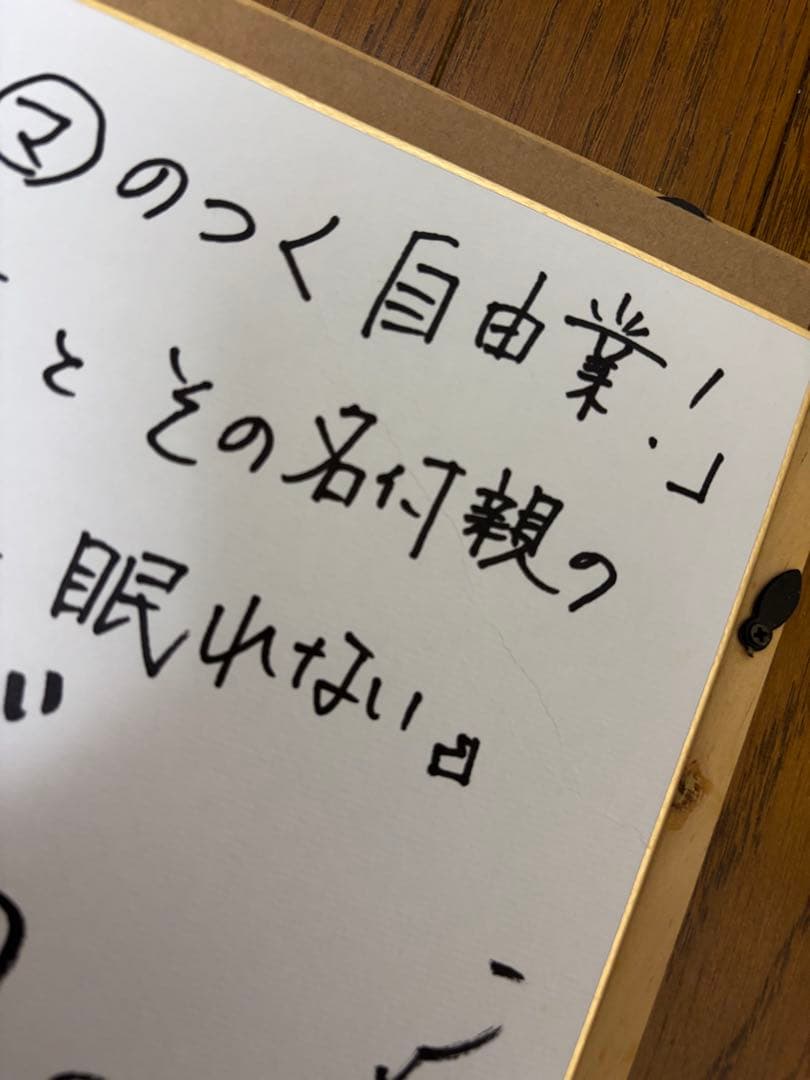 ㋮のつく自由業!」
とその名付親の
眠れない』